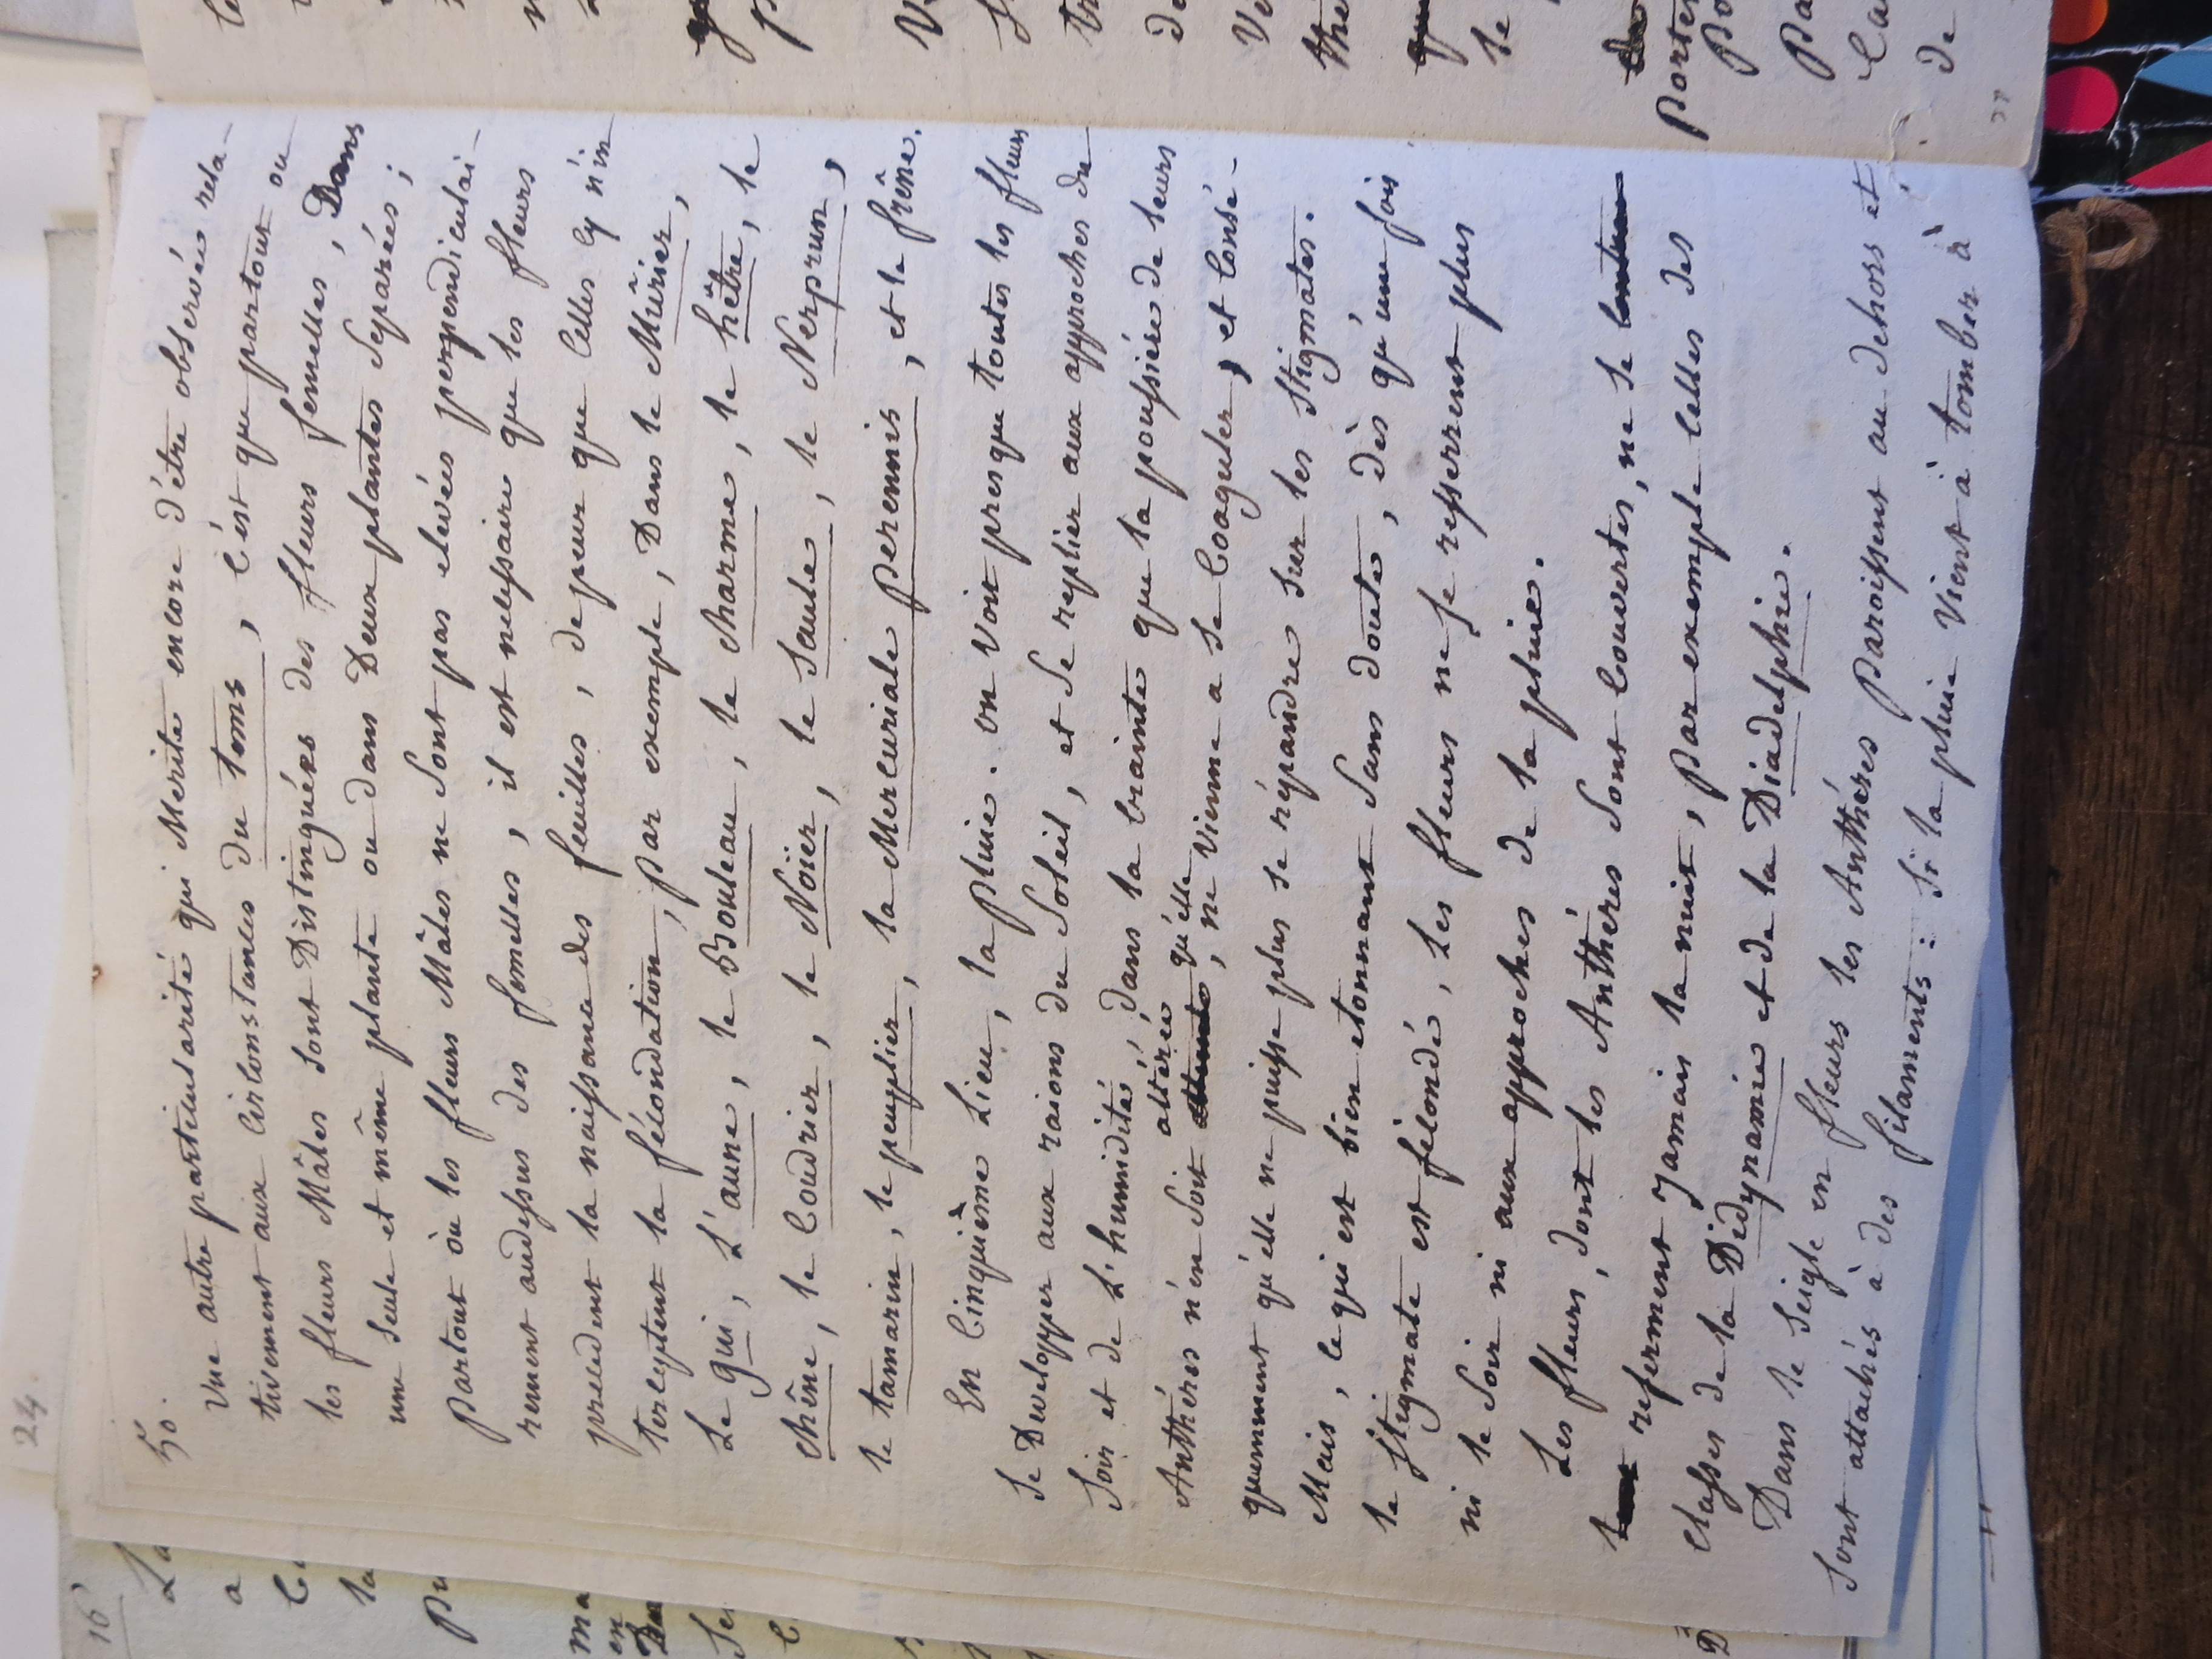 50.
Une autre particularité qui Merite encore d'être observée rela-
tivement aux Circonstances du tems, C'est que partout ou
les fleurs Mâles sont Distinguées des fleurs femelles, Dans
une seule et même plante ou dans Deux plantes Separées;
partout où les fleurs Mâles ne Sont pas elevées perpendiculai-
rement audessus des femelles, il est necessaire que les fleurs
precedent la naissance des feuilles, de peur que Celles Cy n'in
terceptent la fécondation, par exemple, Dans le Mûrier,
Le gui, L'aune, le Bouleau, le charme, le hêtre, le
chêne, le Coudrier, le Noïer, le Saule, le Nerprun,
le tamarin, le peuplier, la Mercuriale perennis, et le frêne.
En Cinquième Lieu, la pluie. on Voit presque toutes les fleurs
Se Developper aux raions du Soleil, et Se replier aux approches du
Soir et de L'humidité, dans la Crainte que la poussiere de leurs
altérée qu'elle
Anthéres n'en Soit atteinte, ne Vienne a se Coaguler, et Consé-
quemment qu'elle ne puisse plus se répandre sur les Stigmates.
Mais, ce qui est bien etonnant Sans doute, dès qu'une fois
le Stigmate est fécondé, les fleurs ne se resserrent plus
ni le Soir ni aux approches de la pluie.
Les fleurs, dont les Anthéres Sont Couvertes, ne se
referment Jamais la nuit, par exemple Celles des
Classes de la Didynamie et de la Diadelphie.
Dans le Seigle en fleurs les Anthéres paroissent au dehors et
Sont attachés à des filaments: Si la pluie Vient à tomber à
24.
16